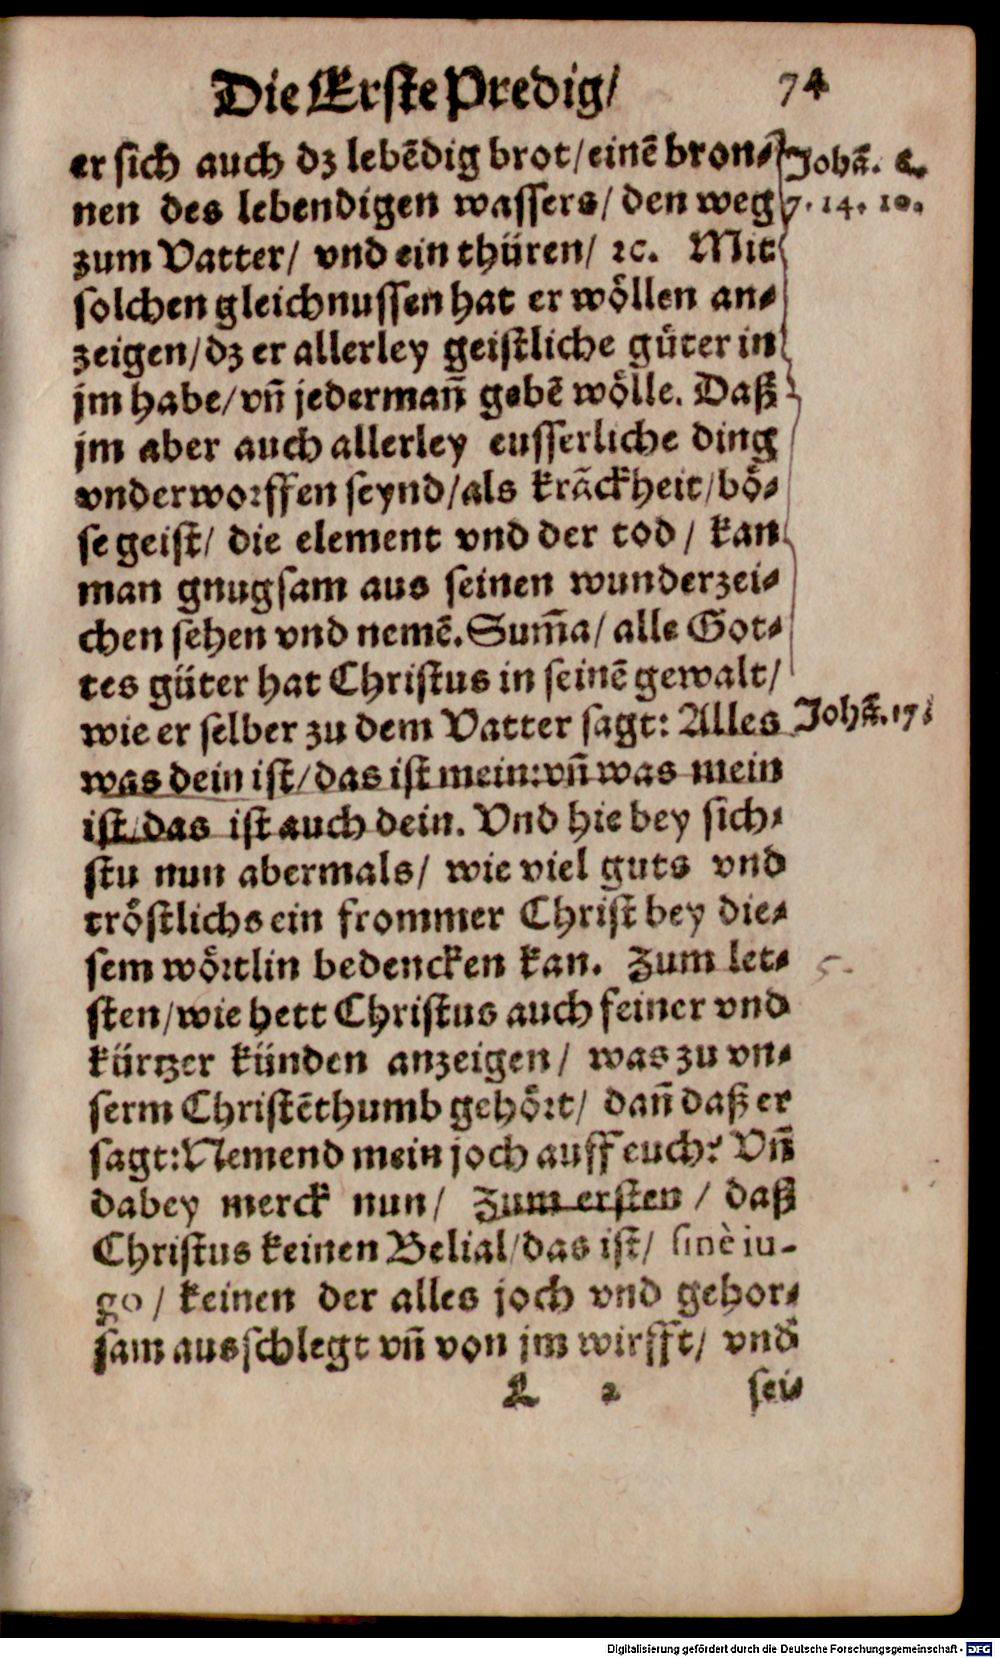 Die Erste Predig/ 74
er sich auch dz lebẽdig brot/einẽ bron- Johã. 6.
nen des lebendigen wassers/ den weg 7. 14. 10.
zum Vatter/ vnd ein thüren/ ꝛc. Mit
solchen gleichnussen hat er wöllen an-
zeigen/dz er allerley geistliche güter in
jm habe/vñ jedermañ gebẽ wölle. Daß
jm aber auch allerley eusserliche ding
vnderworffen seynd/als krãckheit/bö-
se geist/ die element vnd der tod/ kan
man gnugsam aus seinen wunderzei-
chen sehen vnd nemẽ. Sum̃a/ alle Got-
tes güter hat Christus in seinẽ gewalt/
wie er selber zu dem Vatter sagt: Alles Johã. 17.
was dein ist/das ist mein: vñ was mein
ist/das ist auch dein. Vnd hie bey sich-
stu nun abermals/ wie viel guts vnd
tröstlichs ein frommer Christ bey die-
sem wörtlin bedencken kan. Zum let- 5.
sten/wie hett Christus auch feiner vnd
kürtzer künden anzeigen/ was zu vn-
serm Christẽthumb gehört/ dañ daß er
sagt: Nemend mein joch auff euch? Vñ
dabey merck nun/ Zum ersten/ daß
Christus keinen Belial/das ist/ sinè iu-
go/ keinen der alles joch vnd gehor-
sam ausschlegt vñ von jm wirfft/ vnd
L 2 sei-
Digitalisierung gefördert durch die Deutsche Forschungsgemeinschaft - DFG